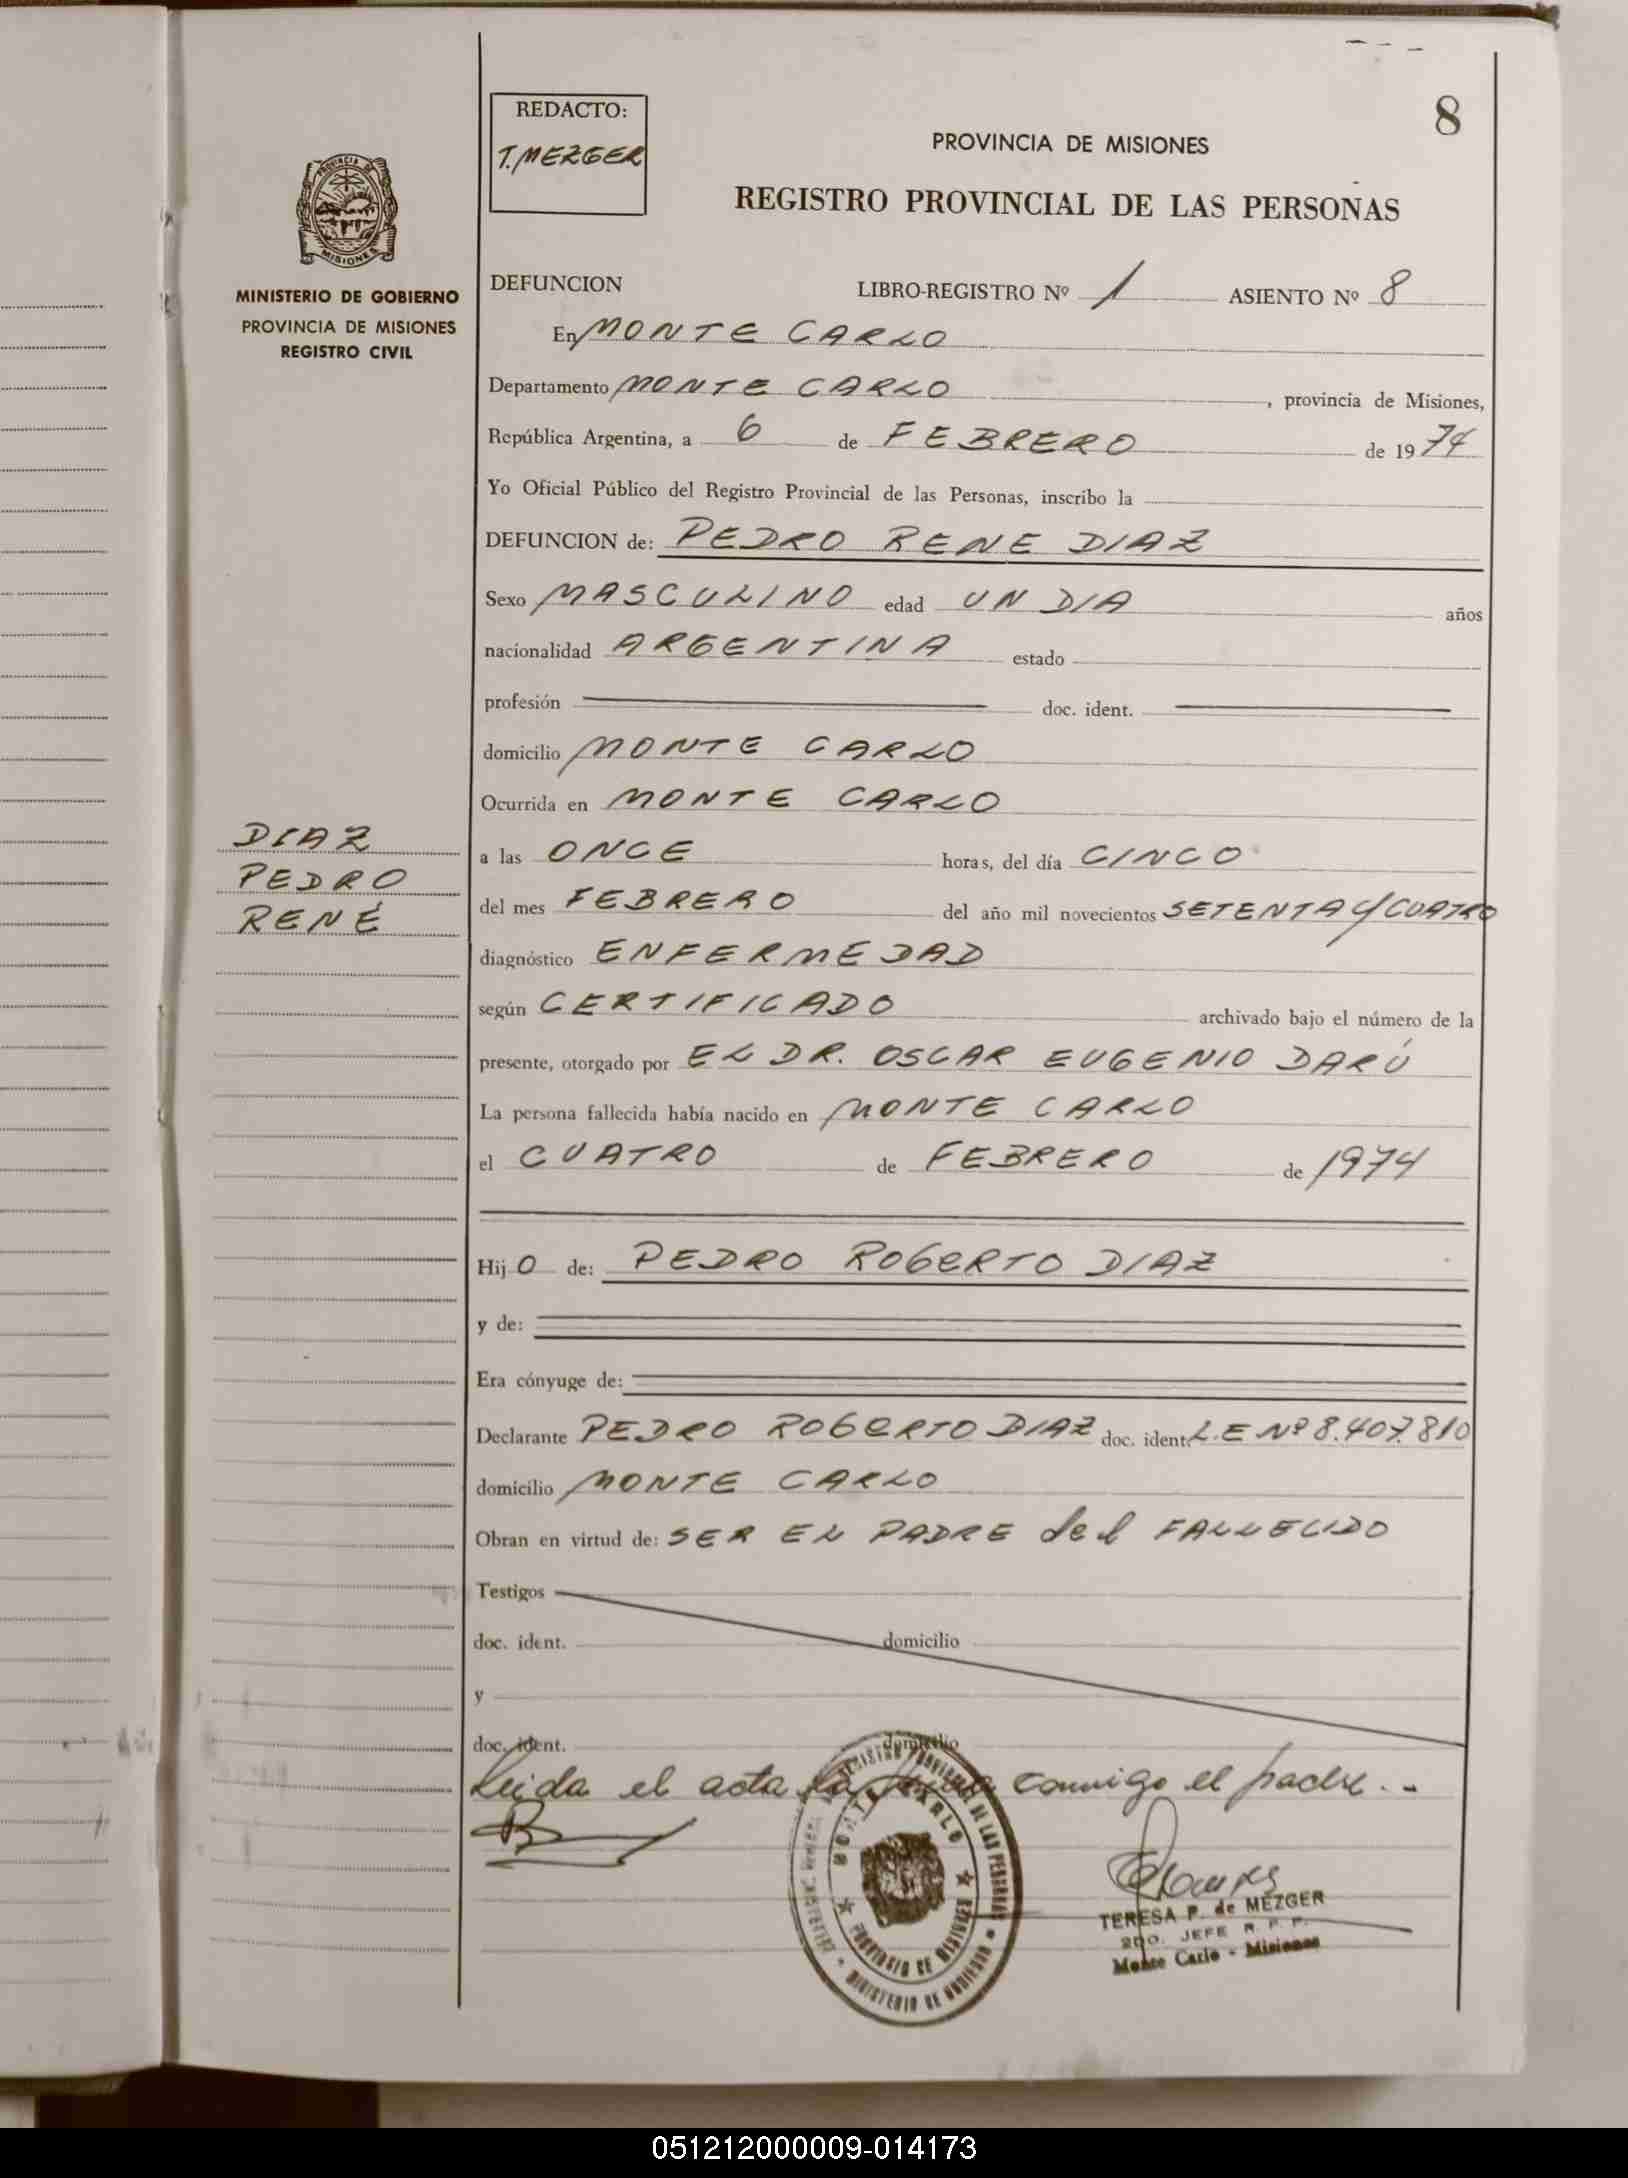 8
REDACTO:
T. MEZGER
PROVINCIA DE MISIONES
REGISTRO PROVINCIAL DE LAS PERSONAS
PROVINCIA DE
MISIONES
MINISTERIO DE GOBIERNO
PROVINCIA DE MISIONES
REGISTRO CIVIL
DEFUNCION LIBRO-REGISTRO Nº 1 ASIENTO Nº 8
En MONTE CARLO
Departamento MONTE CARLO, provincia de Misiones,
República Argentina, a 6 de FEBRERO de 1974
Yo Oficial Público del Registro Provincial de las Personas, inscribo la
DEFUNCION de: PEDRO RENE DIAZ
Sexo MASCULINO edad UN DIA años
nacionalidad ARGENTINA estado
profesión doc. ident.
domicilio MONTE CARLO
Ocurrida en MONTE CARLO
DIAZ
PEDRO
RENÉ
a las ONCE horas, del día CINCO
del mes FEBRERO del año mil novecientos SETENTA Y CUATRO
diagnóstico ENFERMEDAD
según CERTIFICADO archivado bajo el número de la
presente, otorgado por EL DR. OSCAR EUGENIO DARÚ
La persona fallecida había nacido en MONTE CARLO
el CUATRO de FEBRERO de 1974
Hijo de: PEDRO ROBERTO DIAZ
y de:
Era cónyuge de:
Declarante PEDRO ROBERTO DIAZ doc. ident. L.E Nº 8.407.810
domicilio MONTE CARLO
Obran en virtud de: SER EL PADRE del FALLECIDO
Testigos
doc. ident. domicilio
y
doc. ident. domicilio
Leida el acta la firma conmigo el padre.-
MONTE CARLO
PROVINCIA DE MISIONES
MINISTERIO DE GOBIERNO
TERESA P. de MEZGER
2DO. JEFE R. P. P.
Monte Carlo - Misiones
051212000009-014173